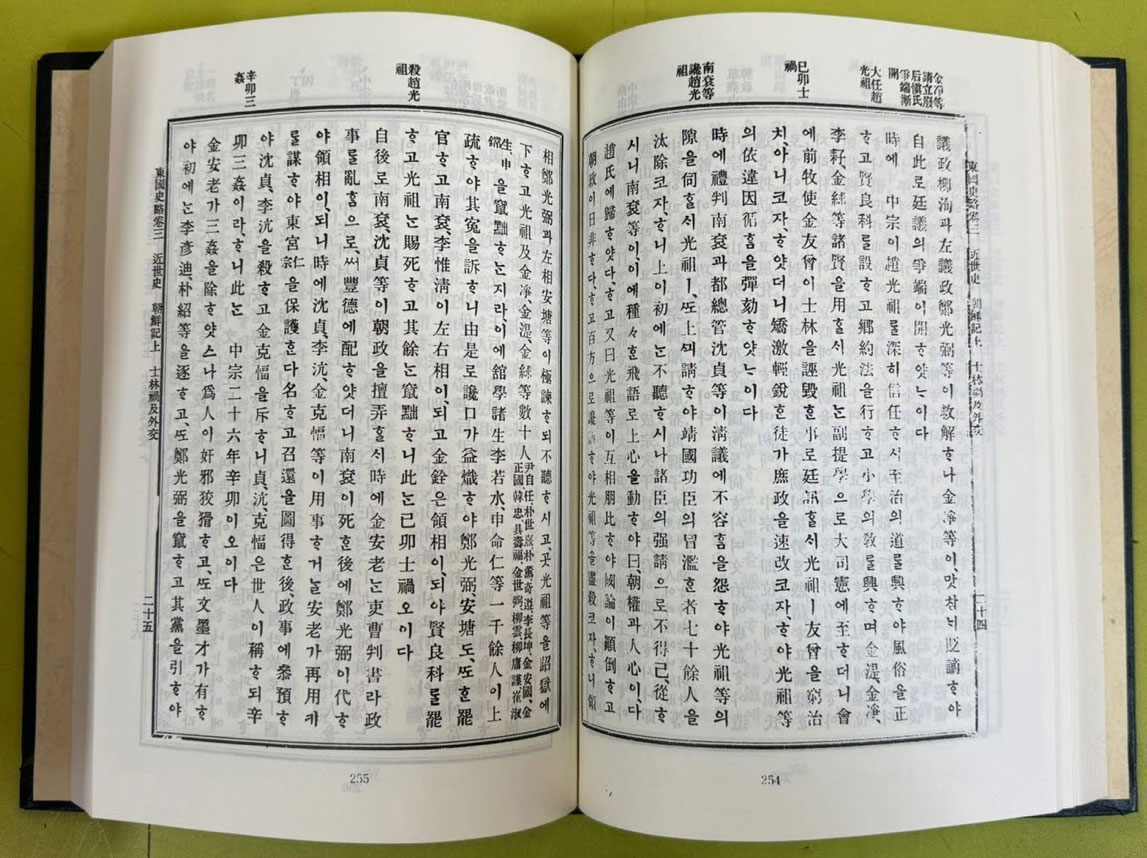 金淨等請立廢后愼氏爭端漸開
大任趙光祖
己卯士禍
南袞等讒趙光祖
東國史略卷三 近世史 朝鮮記上 士林禍及外交 二十四
議政柳洵과左議政鄭光弼等이救解ᄒᆞ나金淨等이,맛참ᄂᆡ貶謫ᄒᆞ야
自此로廷議의爭端이開ᄒᆞ얏ᄂᆞ이다
時에 中宗이趙光祖를深히信任ᄒᆞ시至治의道를興ᄒᆞ야風俗을正
ᄒᆞ고賢良科를設ᄒᆞ고鄕約法을行ᄒᆞ고小學의敎를興ᄒᆞ며金湜,金淨,
李耔,金絿等諸賢을用ᄒᆞᆯᄉᆡ光祖ᄂᆞᆫ副提學으로大司憲에至ᄒᆞ더니會
에前牧使金友曾이士林을誣毁ᄒᆞᆫ事로廷訊ᄒᆞᆯᄉᆡ光祖ㅣ友曾을窮治
치,아니코자,ᄒᆞ얏더니矯激輕銳ᄒᆞᆫ徒가庶政을速改코자,ᄒᆞ야光祖等
의依違因循ᄒᆞᆷ을彈劾ᄒᆞ얏ᄂᆞ이다
時에禮判南袞과都總管沈貞等이淸議에不容ᄒᆞᆷ을怨ᄒᆞ야光祖等의
隙을伺ᄒᆞᆯᄉᆡ光祖ㅣ,ᄯᅩ上ᄭᅴ請ᄒᆞ야靖國功臣의冒濫ᄒᆞᆫ者七十餘人을
汰除코자,ᄒᆞ니上이初에ᄂᆞᆫ不聽ᄒᆞ시나諸臣의强請으로不得已,從ᄒᆞ
시니南袞等이,이에種々ᄒᆞᆫ飛語로上心을動ᄒᆞ야曰,朝權과人心이,다
趙氏에歸ᄒᆞ얏다,ᄒᆞ고又曰光祖等이互相朋比ᄒᆞ야國論이顚倒ᄒᆞ고
朝政이日非ᄒᆞ다,ᄒᆞ고百方으로讒訴ᄒᆞ야光祖等을盡殺코자,ᄒᆞ니領
254
殺趙光祖
辛卯三姦
相鄭光弼과左相安瑭等이極諫ᄒᆞ되不聽ᄒᆞ시고,곳光祖等을詔獄에
下ᄒᆞ고光祖及金淨,金湜,金絿等數十人尹自任朴世熹朴薰奇遵,李長坤,金安國,金正國韓忠,具壽福,金世弼,柳雲,柳庸謹崔淑
生,申鏛을竄黜ᄒᆞᄂᆞᆫ지라이에舘學諸生李若水,申命仁等一千餘人이上
疏ᄒᆞ야其寃을訴ᄒᆞ니由是로讒口가益熾ᄒᆞ야鄭光弼,安瑭도,ᄯᅩᄒᆞᆫ罷
官ᄒᆞ고南袞,李惟淸이左右相이,되고金銓은領相이,되야賢良科를罷
ᄒᆞ고光祖ᄂᆞᆫ賜死ᄒᆞ고其餘ᄂᆞᆫ竄黜ᄒᆞ니此ᄂᆞᆫ己卯士禍오이다
自後로南袞,沈貞等이朝政을擅弄ᄒᆞᆯᄉᆡ時에金安老ᄂᆞᆫ吏曹判書라政
事를亂ᄒᆞᆷ으로,써豐德에配ᄒᆞ얏더니南袞이死ᄒᆞᆫ後에鄭光弼이代ᄒᆞ
야領相이,되니時에沈貞,李沆,金克愊等이用事ᄒᆞ거ᄂᆞᆯ安老가再用키
를謀ᄒᆞ야東宮仁宗을保護ᄒᆞᆫ다名ᄒᆞ고召還을圖得ᄒᆞᆫ後,政事에叅預ᄒᆞ
야沈貞,李沆을殺ᄒᆞ고金克愊을斥ᄒᆞ니貞,沆,克愊은世人이稱ᄒᆞ되辛
卯三姦이라,ᄒᆞ니此ᄂᆞᆫ 中宗二十六年辛卯이오이다
金安老가三姦을除ᄒᆞ얏스나爲人이奸邪狡猾ᄒᆞ고,ᄯᅩ文墨才가有ᄒᆞ
야初에ᄂᆞᆫ李彦迪,朴紹等을逐ᄒᆞ고,ᄯᅩ鄭光弼을竄ᄒᆞ고其黨을引ᄒᆞ야
東國史略卷三 近世史 朝鮮記上 士林禍及外交 二十五
255